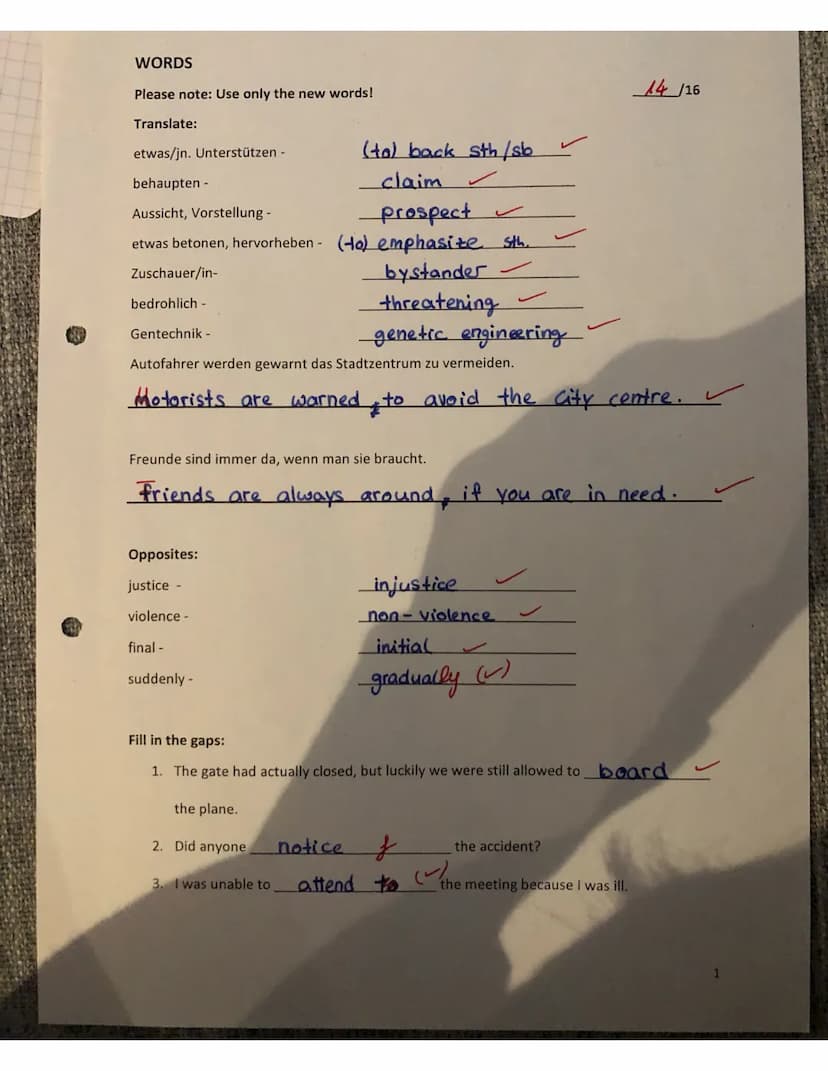 WORDS
Please note: Use only the new words! 14 /16
Translate:
etwas/jn. Unterstützen - (to) back sth/sb
behaupten - claim
Aussicht, Vorstellung - prospect
etwas betonen, hervorheben - (to) emphasize sth.
Zuschauer/in- bystander
bedrohlich - threatening
Gentechnik - genetic engineering
Autofahrer werden gewarnt das Stadtzentrum zu vermeiden.
Motorists are warned, to avoid the city centre.
Freunde sind immer da, wenn man sie braucht.
Friends are always around, if you are in need.
Opposites:
justice - injustice
violence - non-violence
final - initial
suddenly - gradually (✓)
Fill in the gaps:
1. The gate had actually closed, but luckily we were still allowed to board
the plane.
2. Did anyone notice f the accident?
3. I was unable to attend to (✓) the meeting because I was ill.
1